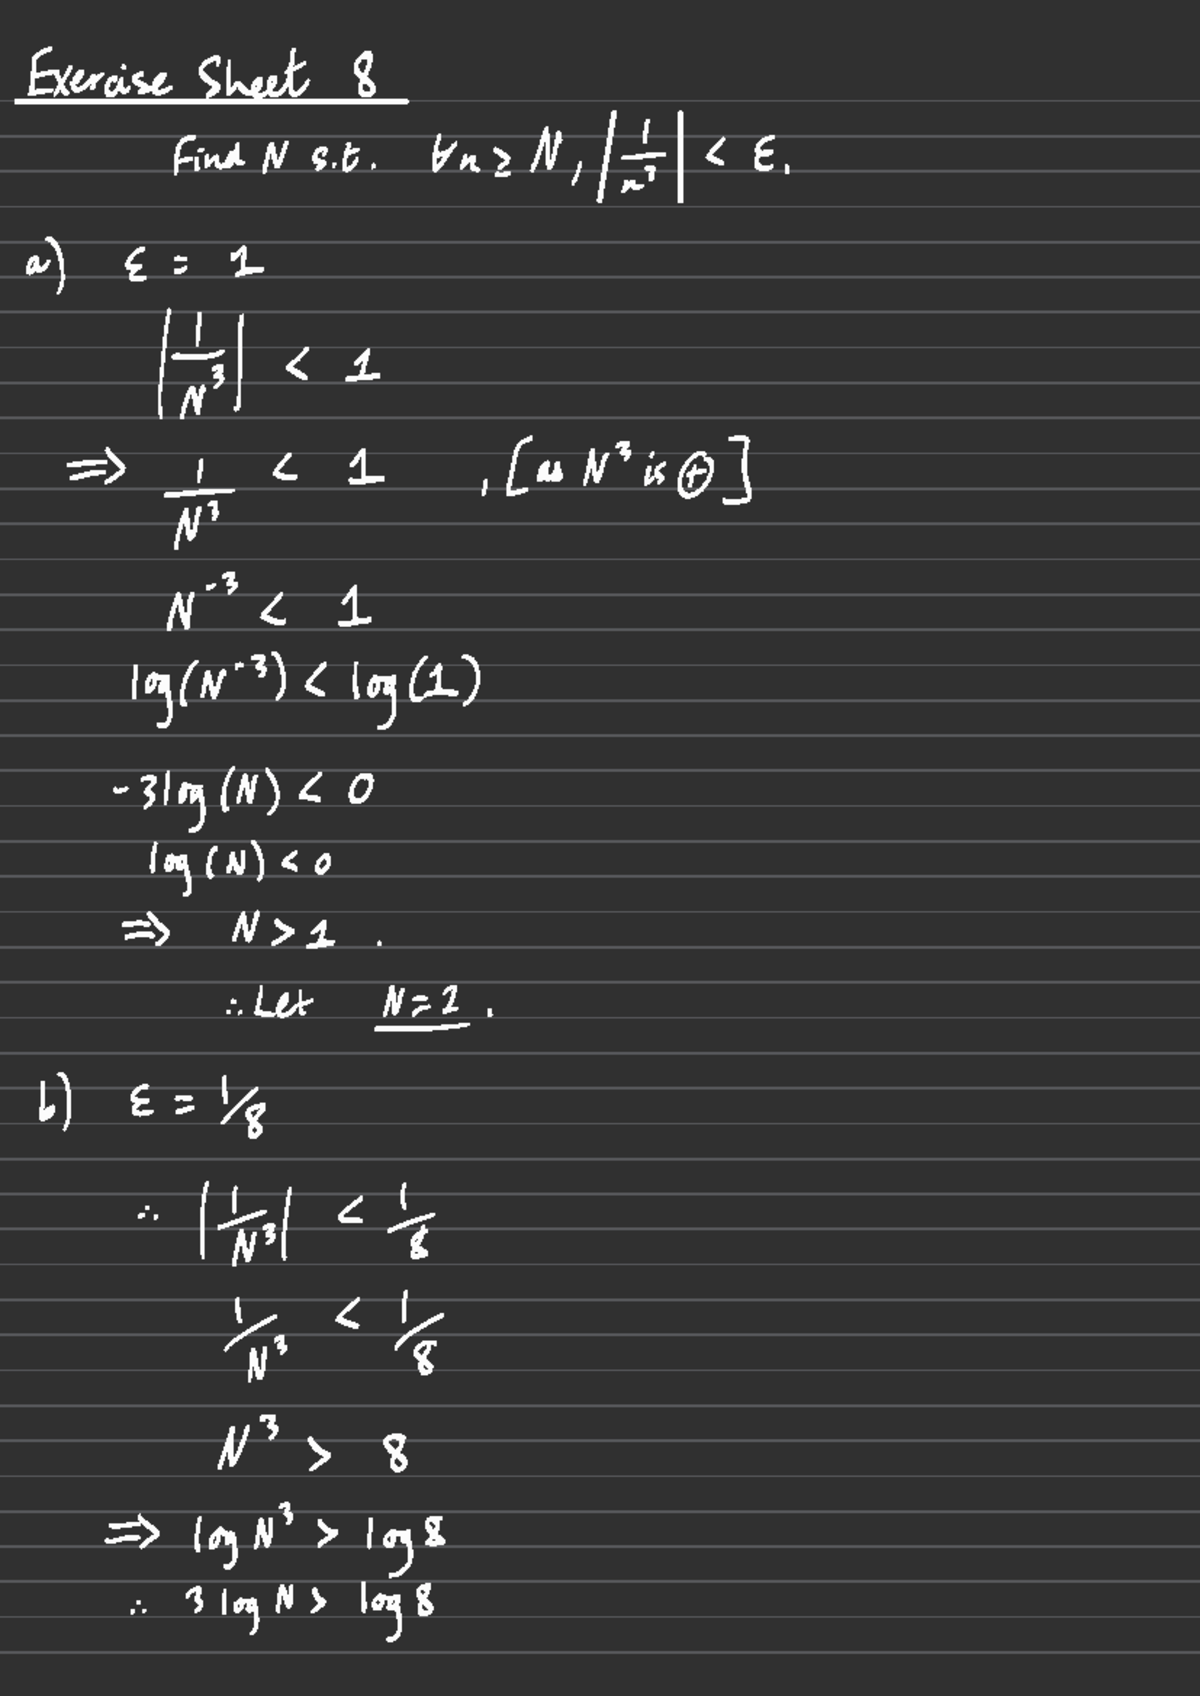 Exercise Sheet 8
Find N s.t. ∀n ≥ N, |1/n³| < ε.
a) ε = 1
|1/N³| < 1
⇒ 1/N³ < 1 , [as N³ is ⊕]
N⁻³ < 1
log(N⁻³) < log(1)
-3log(N) < 0
log(N) < 0
⇒ N > 1 .
∴ Let N = 2 .
b) ε = 1/8
∴ |1/N³| < 1/8
1/N³ < 1/8
N³ > 8
⇒ log N³ > log 8
∴ 3 log N > log 8